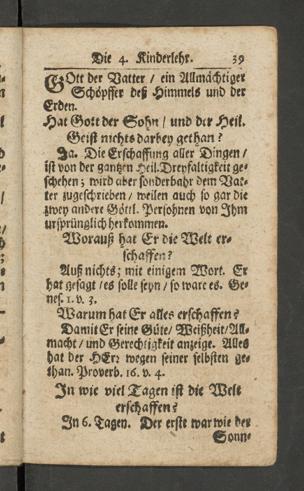 Die 4. Kinderlehr. 39
GOtt der Vatter / ein Allmächtiger
Schöpffer deß Himmels und der
Erden.
Hat Gott der Sohn / und der Heil.
Geist nichts darbey gethan?
Ja. Die Erschaffung aller Dingen /
ist von der gantzen Heil. Dreyfaltigkeit ge-
schehen; wird aber sonderbahr dem Vat-
ter zugeschrieben / weilen auch so gar die
zwey andere Göttl. Persohnen von Ihm
ursprünglich herkommen.
Worauß hat Er die Welt er-
schaffen?
Auß nichts; mit einigem Wort. Er
hat gesagt / es solle seyn / so ware es. Ge-
nes. 1. v. 3.
Warum hat Er alles erschaffen?
Damit Er seine Güte / Weißheit / All-
macht / und Gerechtigkeit anzeige. Alles
hat der HErr wegen seiner selbsten ge-
than. Proverb. 16. v. 4.
In wie viel Tagen ist die Welt
erschaffen?
In 6. Tagen. Der erste war wie der
Sonn-